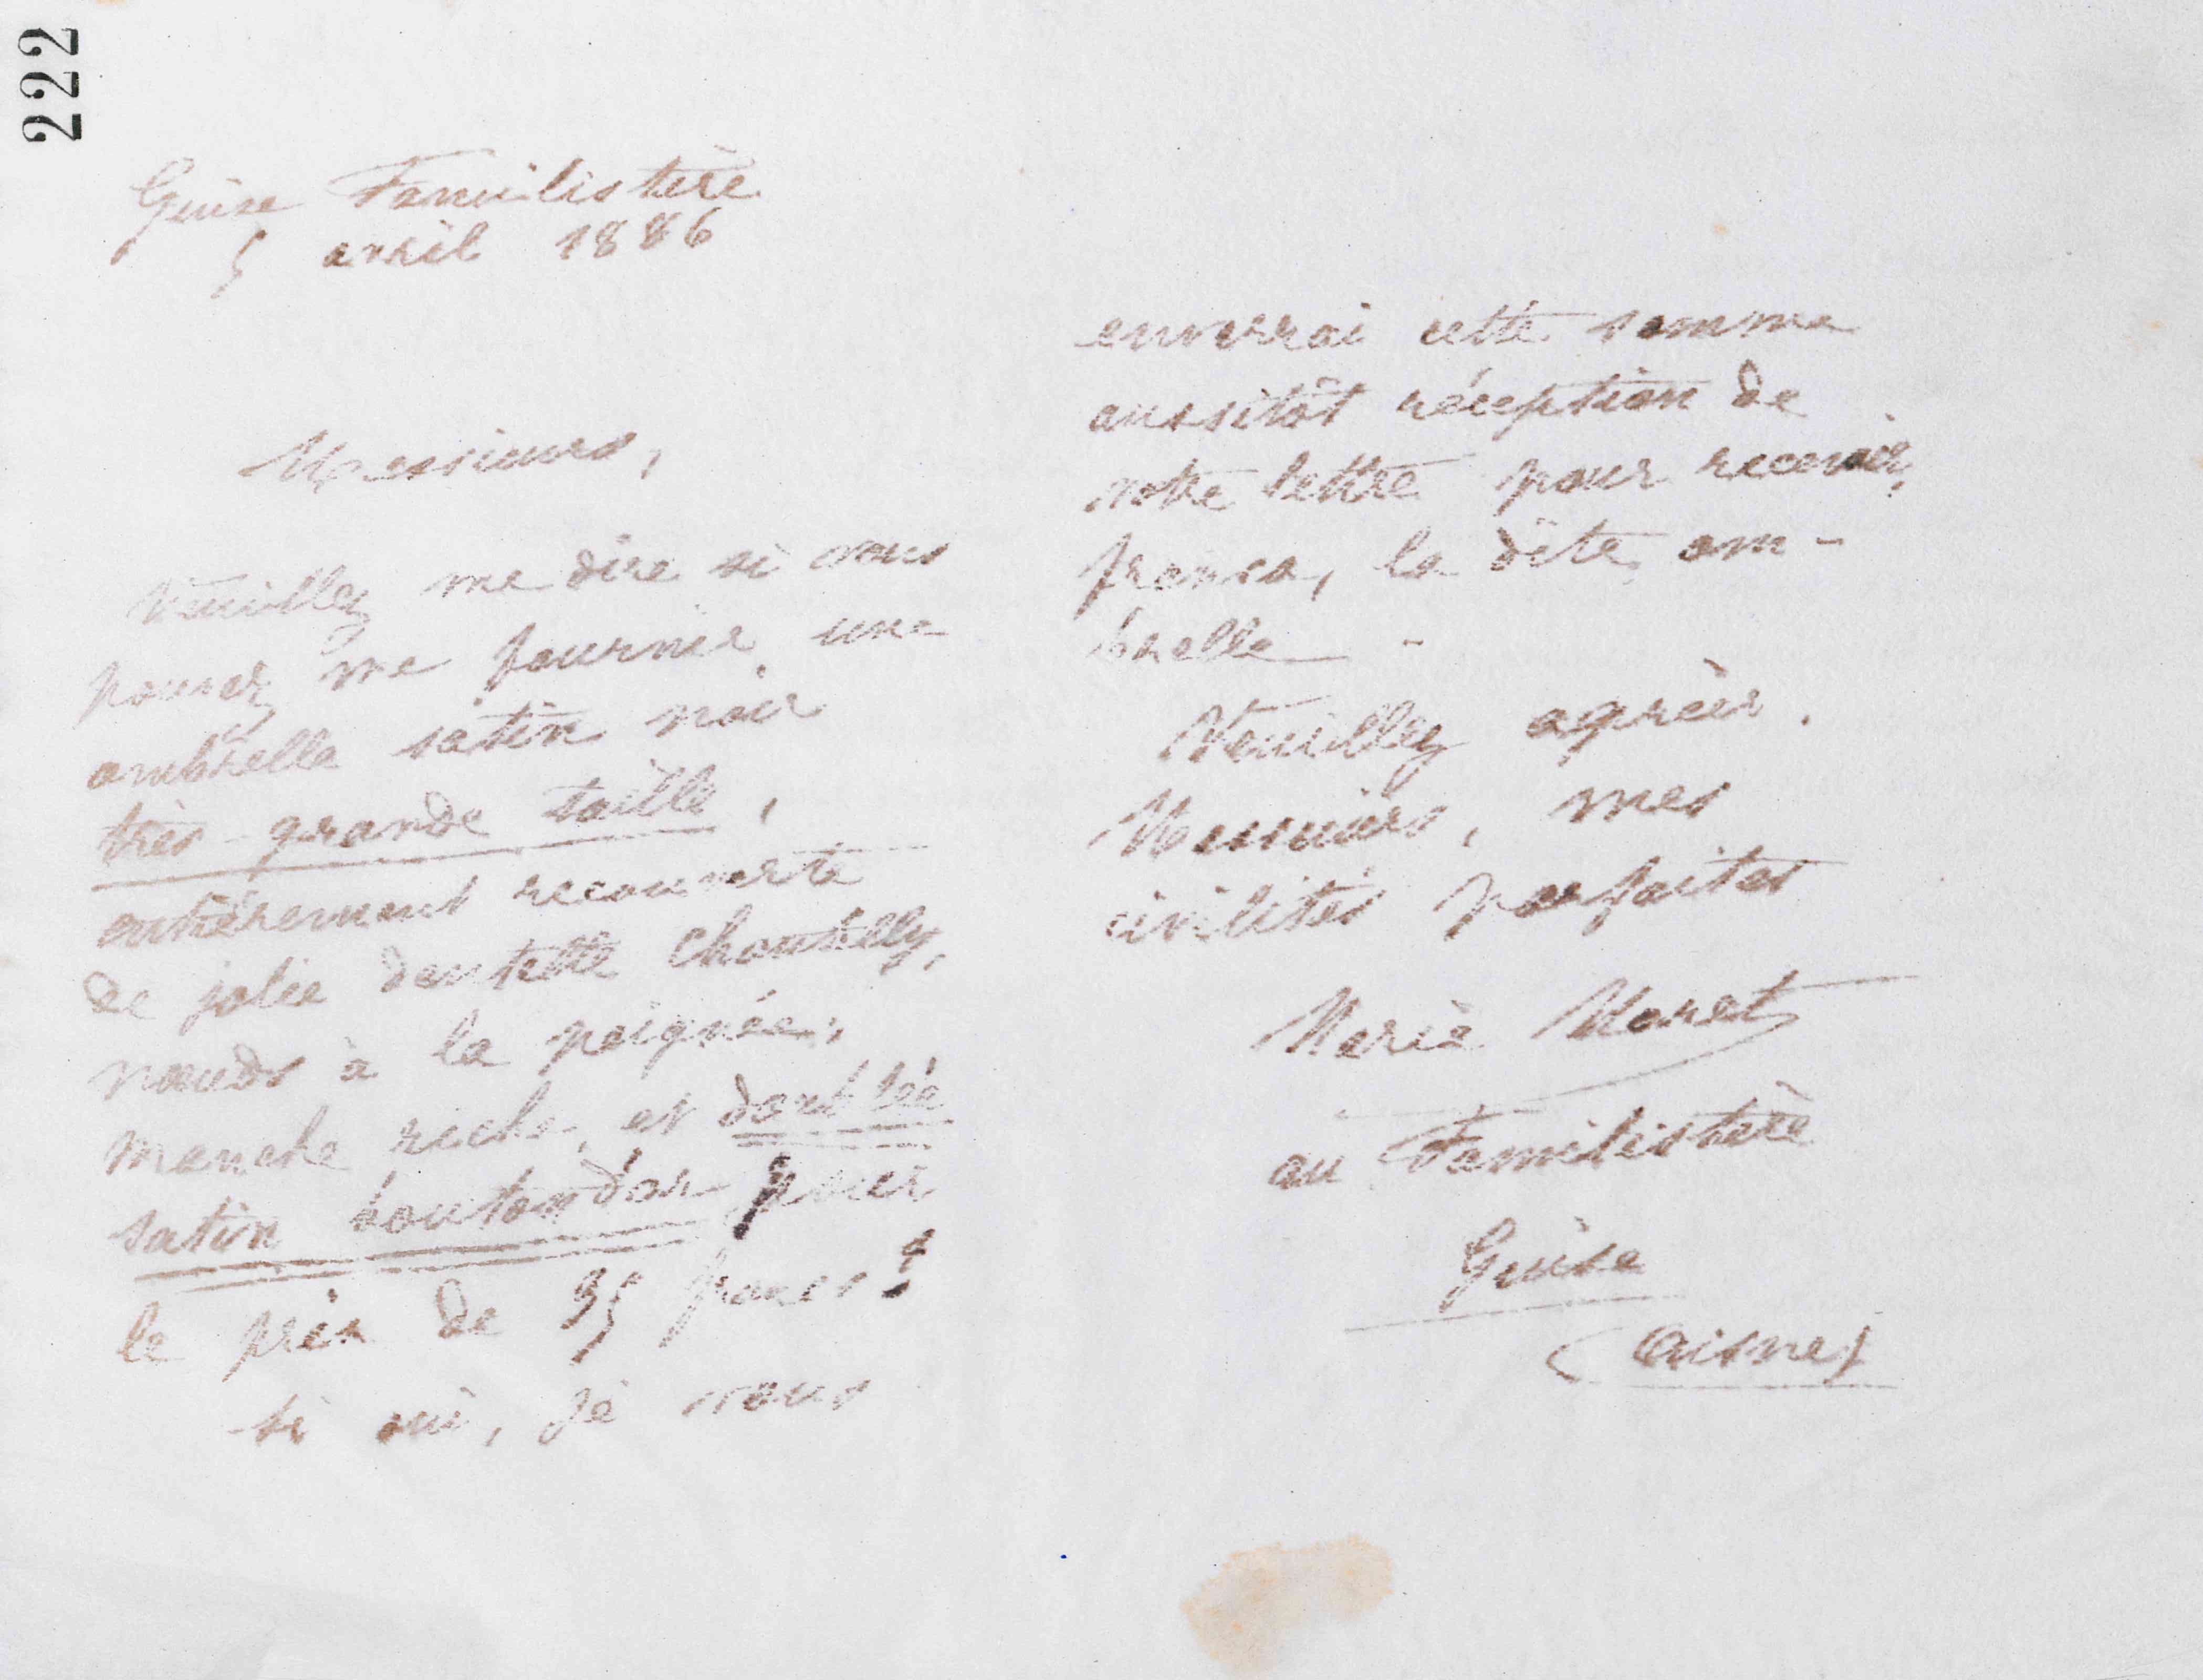 222
Guise Familistère
5 avril 1886
Messieurs,
Veuillez me dire si vous
pouvez me fournir, une
ombrelle satin noir
très-grande taille,
entièrement recouverte
de jolie dentelle Chantilly,
nœuds à la poignée,
manche riche, et doublée
satin bouton d'or pour
le prix de 35 francs ?
Si oui, je vous
enverrai cette somme
aussitôt réception de
votre lettre pour recevoir,
franco, la dite om-
brelle -
Veuillez agréer,
Messieurs, mes
civilités parfaites
Marie Moret
au Familistère
Guise
(Aisne)